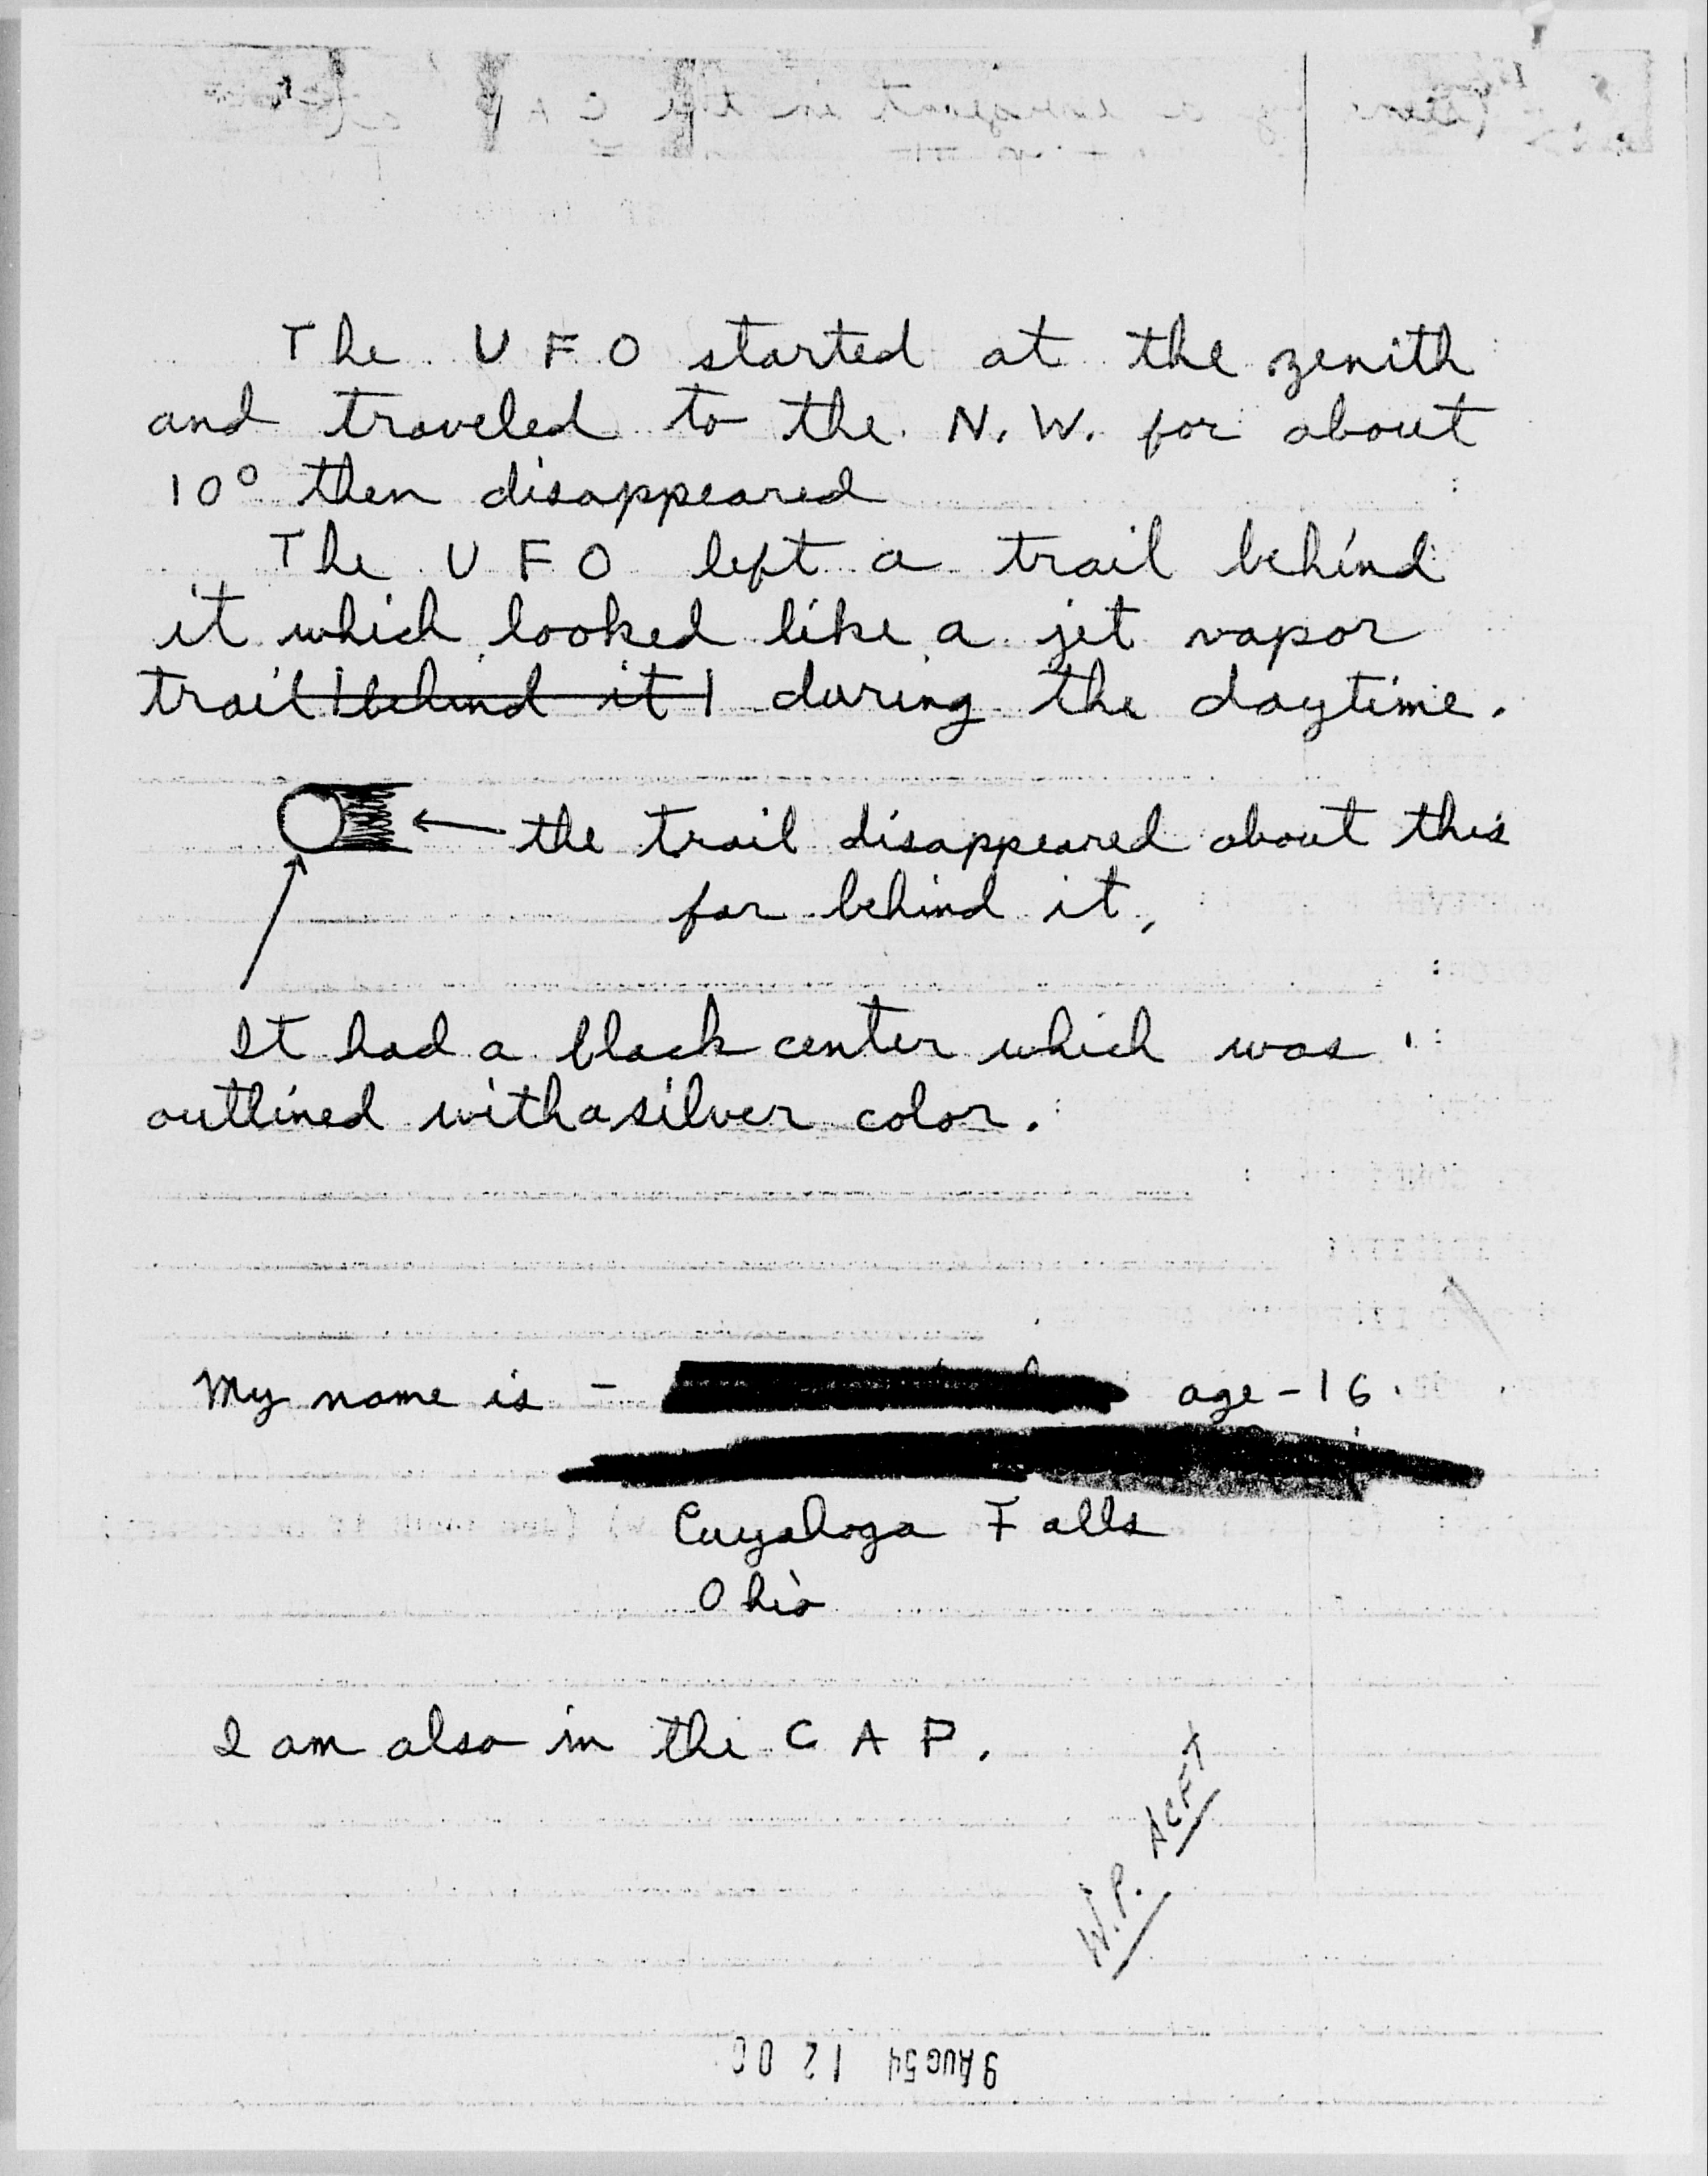 The U F O started at the zenith
and traveled to the N.W. for about
10° then disappeared
The U F O left a trail behind
it which looked like a jet vapor
trail behind it during the daytime.
the trail disappeared about this
far behind it.
It had a black center which was
outlined with a silver color.
My name is - age - 16.
Cuyahoga Falls
Ohio
I am also in the C A P.
W.P. ACFT
9 AUG 54 12 00